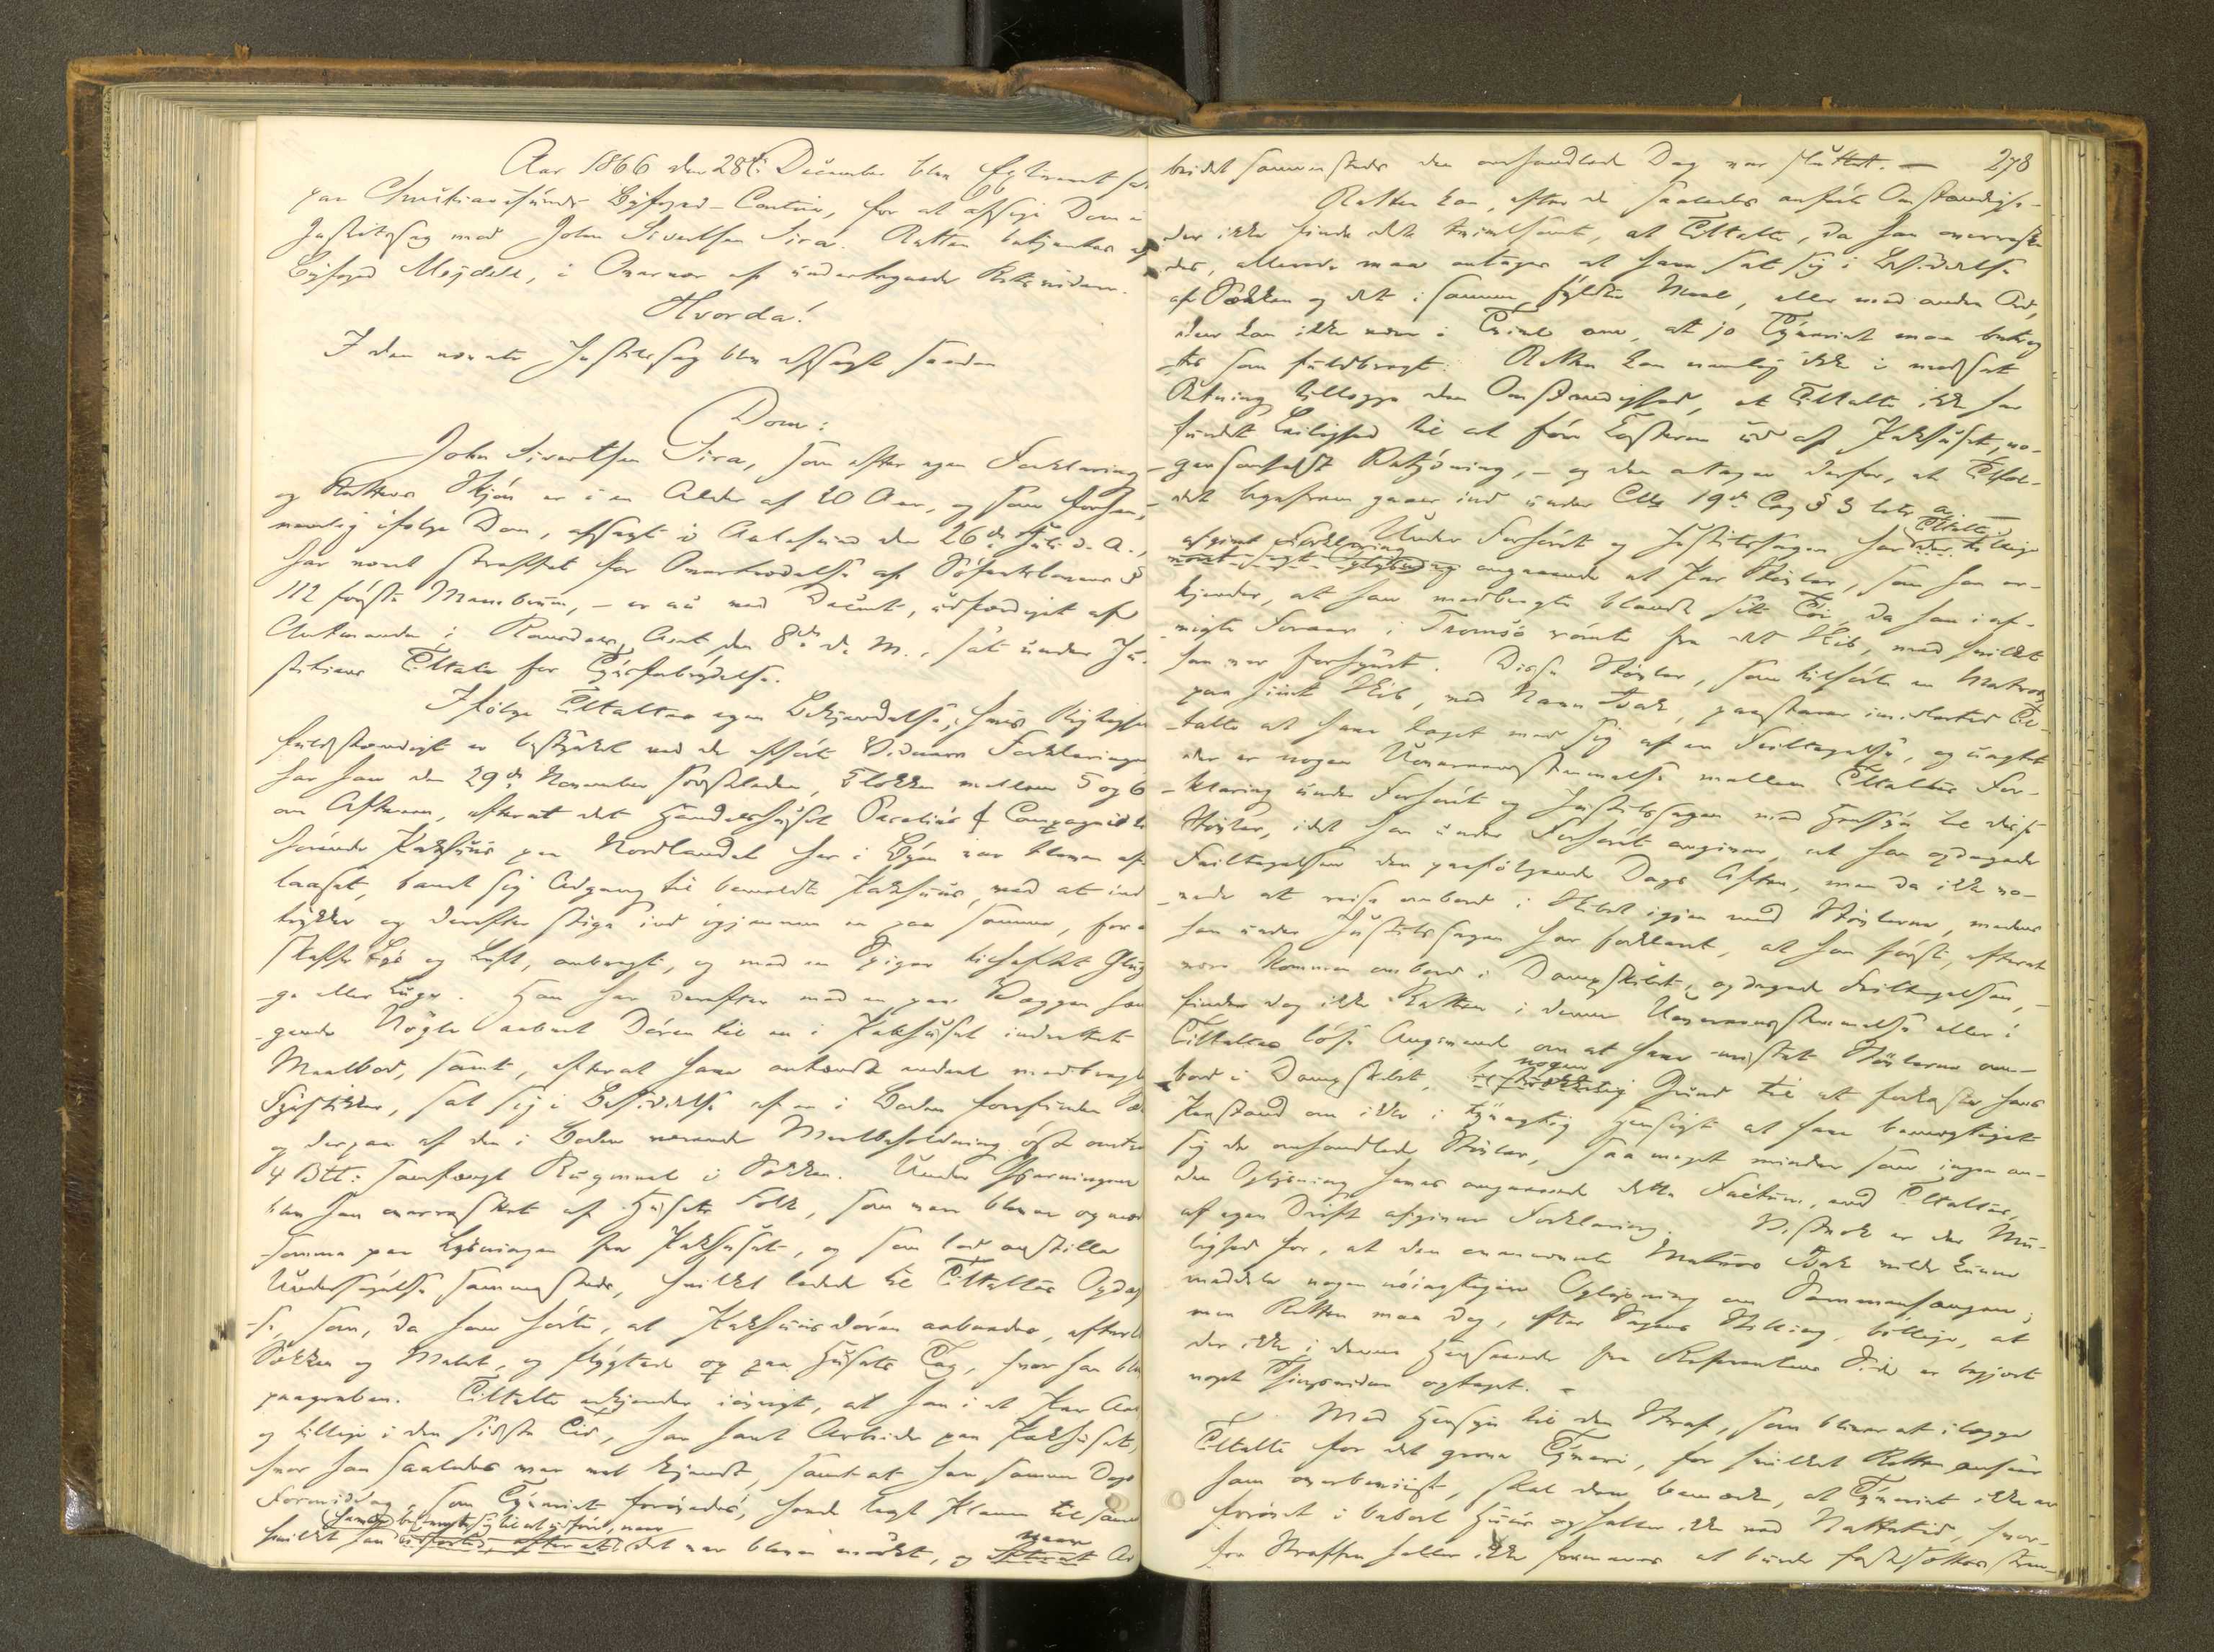 Aar 1866 den 28de December blev Extraret sat
paa Christianssunds Byfoged-Contoir, for at afsige Dom i
Justitssag mod John Sivertsen Sira. Retten betjentes af
Byfoged Mejdell, i Overvær af undertegnede Retsvidner.
Hvorda!
I den nævnte Justitssag blev afsagt saadan
Dom:
John Sivertsen Sira, som efter egen Forklaring
og Rettens Skjøn er i en Alder af 20 Aar, og som forhen,
nemlig ifølge Dom, afsagt i Aalesund den 26de Juli d. A.,
har været straffet for Overtrædelse af Søfartslovens §
112 første Membrum, – er nu ved Decret, udfærdiget af
Amtmanden i Romsdals Amt den 8de d. M., sat under Ju-
stitiens Tiltale for Tyvsforbrydelse.
Ifølge Tiltaltes egen Bekjendelse, hvis Rigtighed
fuldstændigt er bestyrket ved de afhørte Vidners Forklaringer
har han den 29de November sidstleden, Klokken mellem 5 og 6
om Aftenen, efterat det Handelshuset Parelius & Compagni til
hørende Pakhuus paa Nordlandet her i Byen var bleven af
laaset, banet sig Adgang til bemeldte Pakhuus, ved at ind
trykke og derefter stige ind igjennem en paa samme, for a
skaffe Lys og Luft, anbragt, og med en Spiger tilheftet Glug
-ge eller Luge. Han har derefter med en paa Væggen hæn
-gende Nøgle aabnet Døren til en i Pakhuset indrettet
Meelbod, samt, efterat have antændt endeel medbragte
Fyrstikker, sat sig i Besiddelse af en i Boden forefunden Sæk
og derpaa af den i Boden værende Meelbeholdning øst omtre
4 Btt: sammalt Rugmeel i Sækken. Under Gjerningen
blev han overrasket af Husets Folk, som vare blevne opmærk
-somme paa Lysningen fra Pakhuset, og som lod anstille
Undersøgelse sammesteds, hvilket ledede til Tiltaltes Opdag
-se, som, da han hørte, at Pakhuusdøren aabnedes, efterl
Sækken og Melet, og flygtede op paa Husets Tag, hvor han blev
paagreben. Tiltalte erkjender iøvrigt, at han i et Par Aar
og tillige i den sidste Tid, har havt Arbeide paa Pakhuset,
hvor han saaledes var vel kjendt, samt at han samme Dags
Formiddag, som Tyveriet forøvedes, havde lagt Planen til samme
han begav sig til at udføre, naar
hvilket han udførte, efterat det var bleven mørkt, og naar efterat Ar
beidet sammesteds den omhandlede Dag var sluttet. — 278
Retten kan, efter de saaledes anførte Omstændighe-
der ikke finde det tvivlsomt, at Tiltalte, da han overraske
des, allerede maa antages at have sat sig i Besiddelse
af Sækken og det i samme fyldte Meel, eller med andre Ord,
der kan ikke være i Tvivl om, at jo Tyveriet maa betrag
-tes som fuldbragt. Retten kan nemlig ikke i modsat
Retning tillægge den Omstændighed, at Tiltalte ikke har
fundet Leilighed til at føre Kosterne ud af Pakhuset, no-
gensomhelst Betydning, – og den antager derfor, at Tilfæl-
det ligefrem gaaer ind under CLs 19de Cap § 3 litr a.
Under Forhøret og Justitssagen har Tiltalte der tillige
afgivet Forklaring
angaaende et Par Støvler, som han er-
kjender, at han medbragte blandt sit Tøi, da han i af-
vigte Foraar i Tromsø rømte fra det Skib, med hvilket
han var forhyret. Disse Støvler, som tilhørte en Matros
paa hiint Skib, ved Navn Bak, paastaaer imidlertid Til-
-talte at have taget med sig af en Feiltagelse, og uagtet
der er nogen Uoverensstemmelse mellem Tiltaltes For-
-klaring under Forhøret og Justitssagen med Hensyn til disse
Støvler, idet han under Forhøret angiver, at han opdagede
Feiltagelsen den paafølgende Dags Aften, men da ikke vo-
-vede at reise ombord i Skibet igjen med Støvlerne, medens
han under Justitssagen har forklaret, at han først, efterat
være kommen ombord i Dampskibet, opdagede Feiltagelsen, –
finder dog ikke Retten i denne Uoverensstemmelse eller i
Tiltaltes løse Angivende om at have mistet Støvlerne om-
bord i Dampskibet, nogen Grund til at forkaste hans
Paastand om ikke i tyvagtig Hensigt at have bemægtiget
sig de omhandlede Støvler, saa meget mindre som ingen an-
den Oplysning haves angaaende dette Factum, end Tiltaltes,
af egen Drift afgivne Forklaring. Vistnok er der Mu-
lighed for, at den ommeldte Matros Bak vilde kunne
meddele nogen nøiagtigere Oplysning om Sammenhængen;
men Retten maa dog, efter Sagens Stilling, billige, at
der ikke i denne Henseende fra Referentens Side er begjært
noget Thingsvidne optaget. –
Med Hensyn til den Straf, som bliver at ilægge
Tiltalte for det grove Tyveri, for hvilket Retten anseer
ham overbeviist, skal den bemærke, at Tyveriet ikke er
forøvet i beboet Huus og heller ikke ved Nattetid, hvor-
for Straffen heller ikke formenes at burde fastsættes stren-